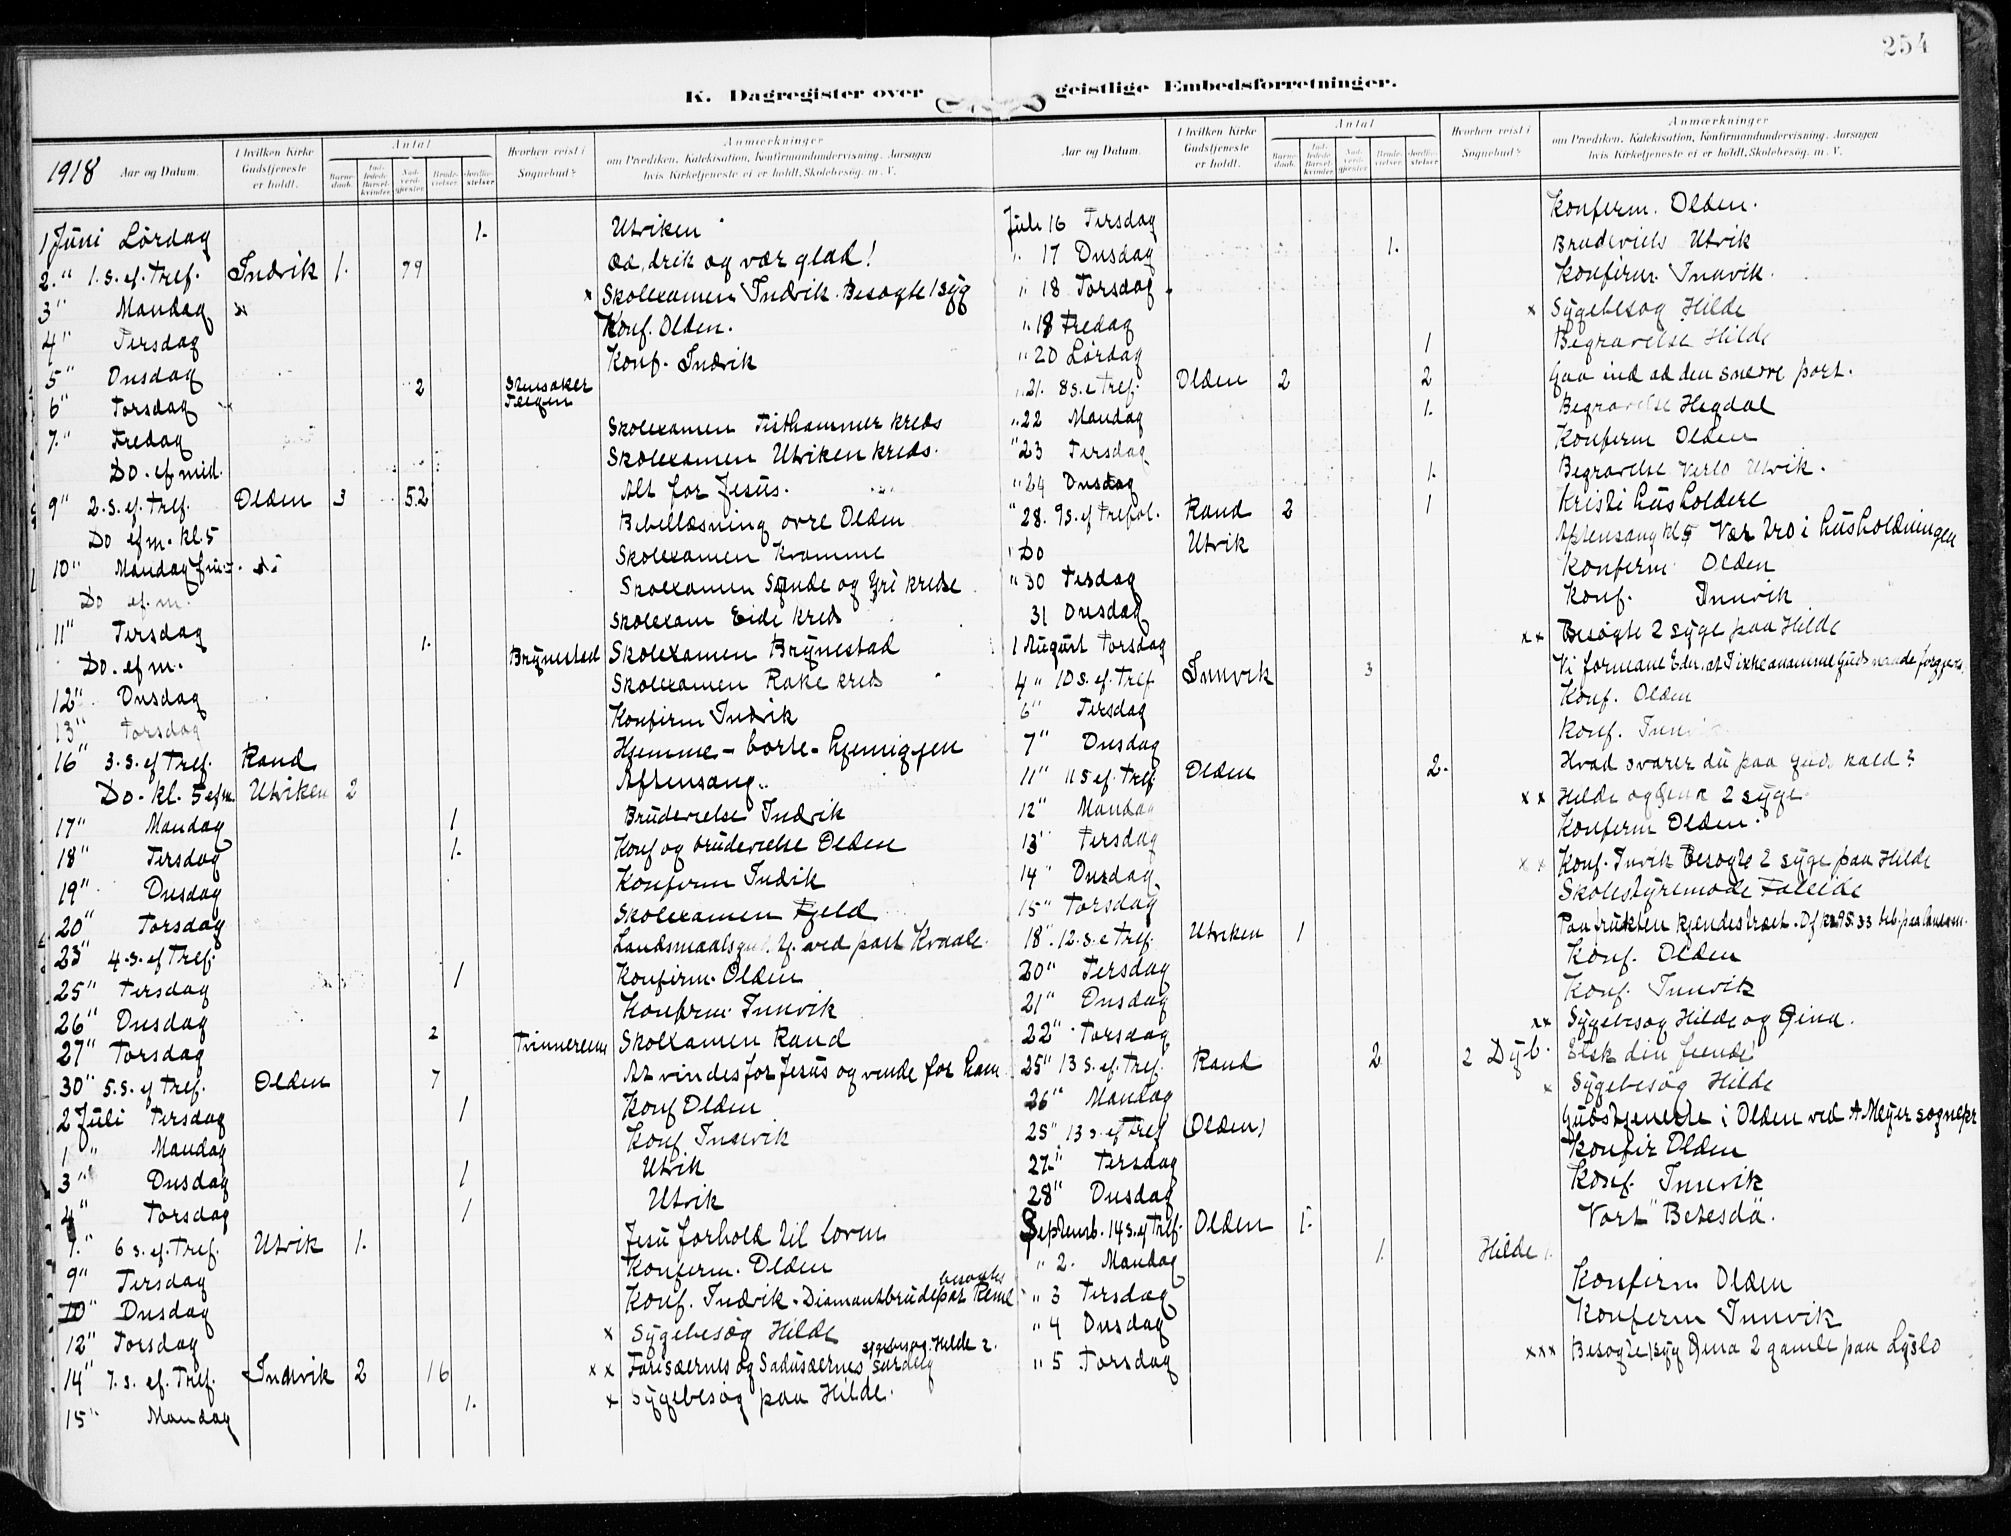 254
K. Dagregister over geistlige Embedsforretninger.
1918 Aar og Datum.
I hvilken Kirke Gudstjeneste er holdt.
Antal
Barnedaab.
Indledede Barselkvinder.
Nadverdgjester
Brudevielser.
Jordfæstelser
Hvorhen reist i Sognebud?
Anmærkninger
om Prædiken, Katekisation, Konfirmandundervisning, Aarsagen
hvis Kirketjeneste ei er holdt, Skolebesøg. m. V.
1 Juni Lørdag 1. Utviken
2. " 1. s. ef. tref. Indvik 1. 79 Æd, drik og vær glad!
3 " Mandag x Skolexamen Indvik. Besøgte 1 syg
4 " Tirsdag Konf. Olden.
5 " Onsdag Konf. Indvik
6 " Torsdag 2
7. " Fredag Skolexamen Tisthammer kreds
Do. ef mid. Skolexamen Utviken kreds.
9 " 2. s. ef. tref. Olden 3 52 Alt for Jesus.
Do efm. kl. 5 Bibellæsning øvre Olden
10 " Mandag Skolexamen Kvamme
Do ef. m. Skolexamen Sunde og Yri kredse
11 " Tirsdag Skolexam Eide kreds
Do. ef m. 1. Brynestad Skolexamen Brynestad
12 " Onsdag Skolexamen Rake kreds
13 " Torsdag Konfirm Indvik
16 " 3. s. ef Tref. Rand Hjemme - borte - hjemigjen
Do. kl. 5 efm. Utviken 2 Aftensang..
17 " Mandag 1 Brudevielse Indvik
18 " Tirsdag 1. Konf og brudevielse Olden
19 " Onsdag Konfirm Indvik
20 " Torsdag Skolexamen Fjeld
23 " 4. s. ef Tref. Landsmaalsgut. tj. ved past Kvaale.
25 " Tirsdag 1 Konfirm. Olden
26 " Onsdag Konfirm Innvik
27 " Torsdag 2 Tvinnereim Skolexamen Rand
30 " 5. s. ef Tref. Olden 7 At vindes for Jesus og vinde for ham
2 Juli Tirsdag 1 Konf Olden
1 " Mandag Konf Innvik
3 " Onsdag 1 Utvik
4 " Torsdag 1 Utvik
7. " 6 s. ef. Tref. Utvik 1. Jesu forhold til loven
9 " Tirsdag Konfirm. Olden
10 " Onsdag Konf. Indvik. Diamantbrudepar besøgtes
12 " Torsdag x Sygebesøg Hilde
14 " 7. s. ef. Tref. Indvik 2 16 x x Farisæernes og Sadusæernes surdeig sygebesøg. Hilde 2.
15 " Mandag 1. x Sygebesøg paa Hilde.
Aar og Datum.
I hvilken Kirke Gudstjeneste er holdt.
Antal
Barnedaab.
Indledede Barselkvinder
Nadverdgjester
Brudevielser
Jordfæstelser
Hvorhen reist i Sognebud?
Anmærkninger
om Prædiken, Katekisation, Konfirmandundervisning, Aarsagen
hvis Kirketjeneste ei er holdt, Skolebesøg. m. V.
Juli 16 Tirsdag Konfirm. Olden.
" 17 Onsdag 1. Brudeviels Utvik
" 18 Torsdag Konfirm. Innvik.
" 18 Fredag x Sygebesøg Hilde
" 20 Lørdag 1 Begravelse Hilde
" 21. 8 s. e Tref. Olden 2 2 Gaa ind ad den snevre port.
" 22 Mandag 1. Begravelse Hegdal
" 23 Tirsdag Konfirm Olden
" 24 Onsdag 1. Begravelse Utvik.
" 28. 9 s. ef Trefol. Rand 2 1 Kristi husholdere
" Do Utvik Aftensang kl 5 Vær tro i husholdningen
" 30 Tirsdag Konfirm Olden
31 Onsdag Konf. Innvik
1 August Torsdag x x Besøgte 2 syge paa Hilde
4 " 10 s. ef. Tref Innvik 3 Vi formane Eder, at I ikke anamme Guds naade forgjeves.
6 " Tirsdag Konf. Olden
7 " Onsdag Konf. Innvik
11 " 11 s ef Tref Olden 2. Hvad svarer du paa Guds kald?
12 " Mandag x x Hilde og Gjena 2 syge.
13 " Tirsdag Konfirm Olden.
14 " Onsdag x x Konf. Invik Besøgte 2 syge paa Hilde
15 " Torsdag Skolestyremøde Faleide
18 " 12. s. e Tref. Utviken 1 Paa frukten kjendes træet.
20 " Tirsdag Konf. Olden
21 " Onsdag Konf. Innvik
22 " Torsdag xx Sygebesøg Hilde og Gjena.
25 " 13 s. ef. Tref. Rand 2 2 Dyb. Elsk din fiende
26 " Mandag x Sygebesøg Hilde
25 " 13 s. ef Tref (Olden) Gudstjeneste i Olden ved A Meyer sognepr
27 " Tirsdag Konfir Olden
28 " Onsdag Konf. Innvik
1 Septemb. 14 s. ef Tref. Olden 1. Vort "Betesda".
" 2. Mandag 1. Hilde 1.
" 3 Tirsdag Konfirm Olden
" 4 Onsdag Konfirm Innvik
" 5 Torsdag xxx Besøgte 1 syg Gjena 2 gamle paa Lyslo